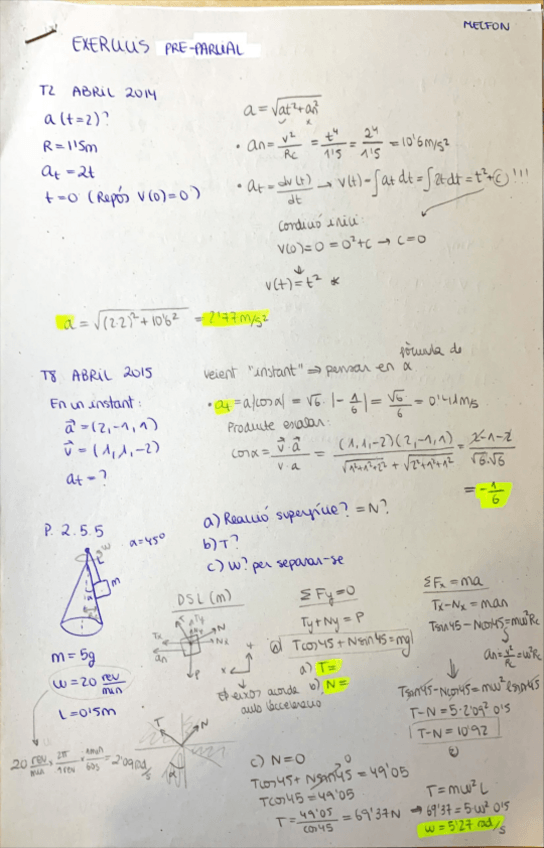 MELFON
EXERCICIS PRE-PARCIAL
T2 ABRIL 2014
a (t=2)?
R = 1'5m
at = 2t
t=0 (Repós V(0)=0)
a = √at²+an²
• an = v²/Rc = t⁴/1'5 = 2⁴/1'5 = 10'6 m/s²
• at = dv(t)/dt → v(t) = ∫at dt = ∫2t dt = t²+C !!!
Condició inici:
V(0) = 0 = 0²+C → C=0
v(t) = t² *
a = √(2·2)²+10'6² =
T8 ABRIL 2015
En un instant:
a⃗ = (2,-1,1)
v⃗ = (1,1,-2)
at = ?
veient "instant" ⇒ pensar en fórmula de α
• at = a|cosα| = √6 · |-1/6| = √6/6 = 0'41 m/s
Producte escalar:
cosα = v⃗·a⃗/v·a = (1,1,-2)(2,-1,1)/√1²+1²+2² + √2²+1²+1² = 2-1-2/√6·√6
= -1/6
P. 2.5.5
α=45º
m = 5g
ω = 20 rev/min
L = 0'5m
20 rev/min × 2π/1rev × 1min/60s = 2'09 rad/s
a) Reacció superfície? = N?
b) T?
c) ω? per separar-se
DSL (m)
T
Ty
Tx
Ny
N
Nx
an
P
x
y
ΣFy = 0
Ty + Ny = P
Tcos45 + Nsin45 = mg
a) T =
b) N =
ΣFx = ma
Tx - Nx = man
Tsin45 - Ncos45 = mω²Rc
an = v²/Rc = ω²Rc
Tsin45 - Ncos45 = mω² lsin45
T - N = 5·2'09²·0'5
T - N = 10'92
c) N = 0
Tcos45 + Nsin45 = 49'05
Tcos45 = 49'05
T = 49'05/cos45 = 69'37N
T = mω²L
→ 69'37 = 5·ω²·0'5
ω = 5'27 rad/s